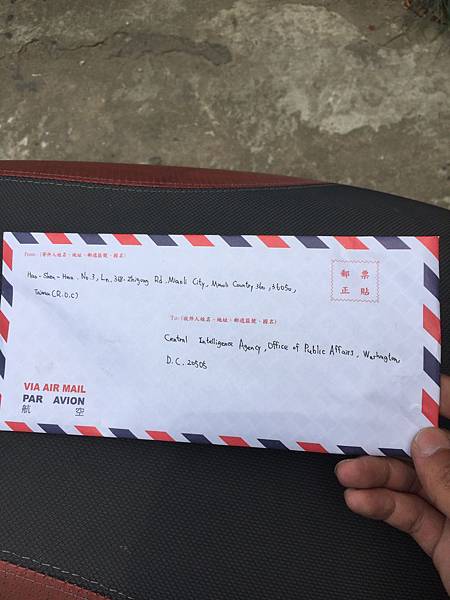 From: (寄件人姓名、地址、郵遞區號、國名)
Hao-Shen-Hua. No.3, Ln. 368. Zhigong Rd. Miaoli City, Miaoli Country 360, 36050,
Taiwan (R.O.C)
郵 票
正 貼
To: (收件人姓名、地址、郵遞區號、國名)
Central Intelligence Agency, Office of Public Affairs, Washington,
D.C. 20505
VIA AIR MAIL
PAR AVION
航 空